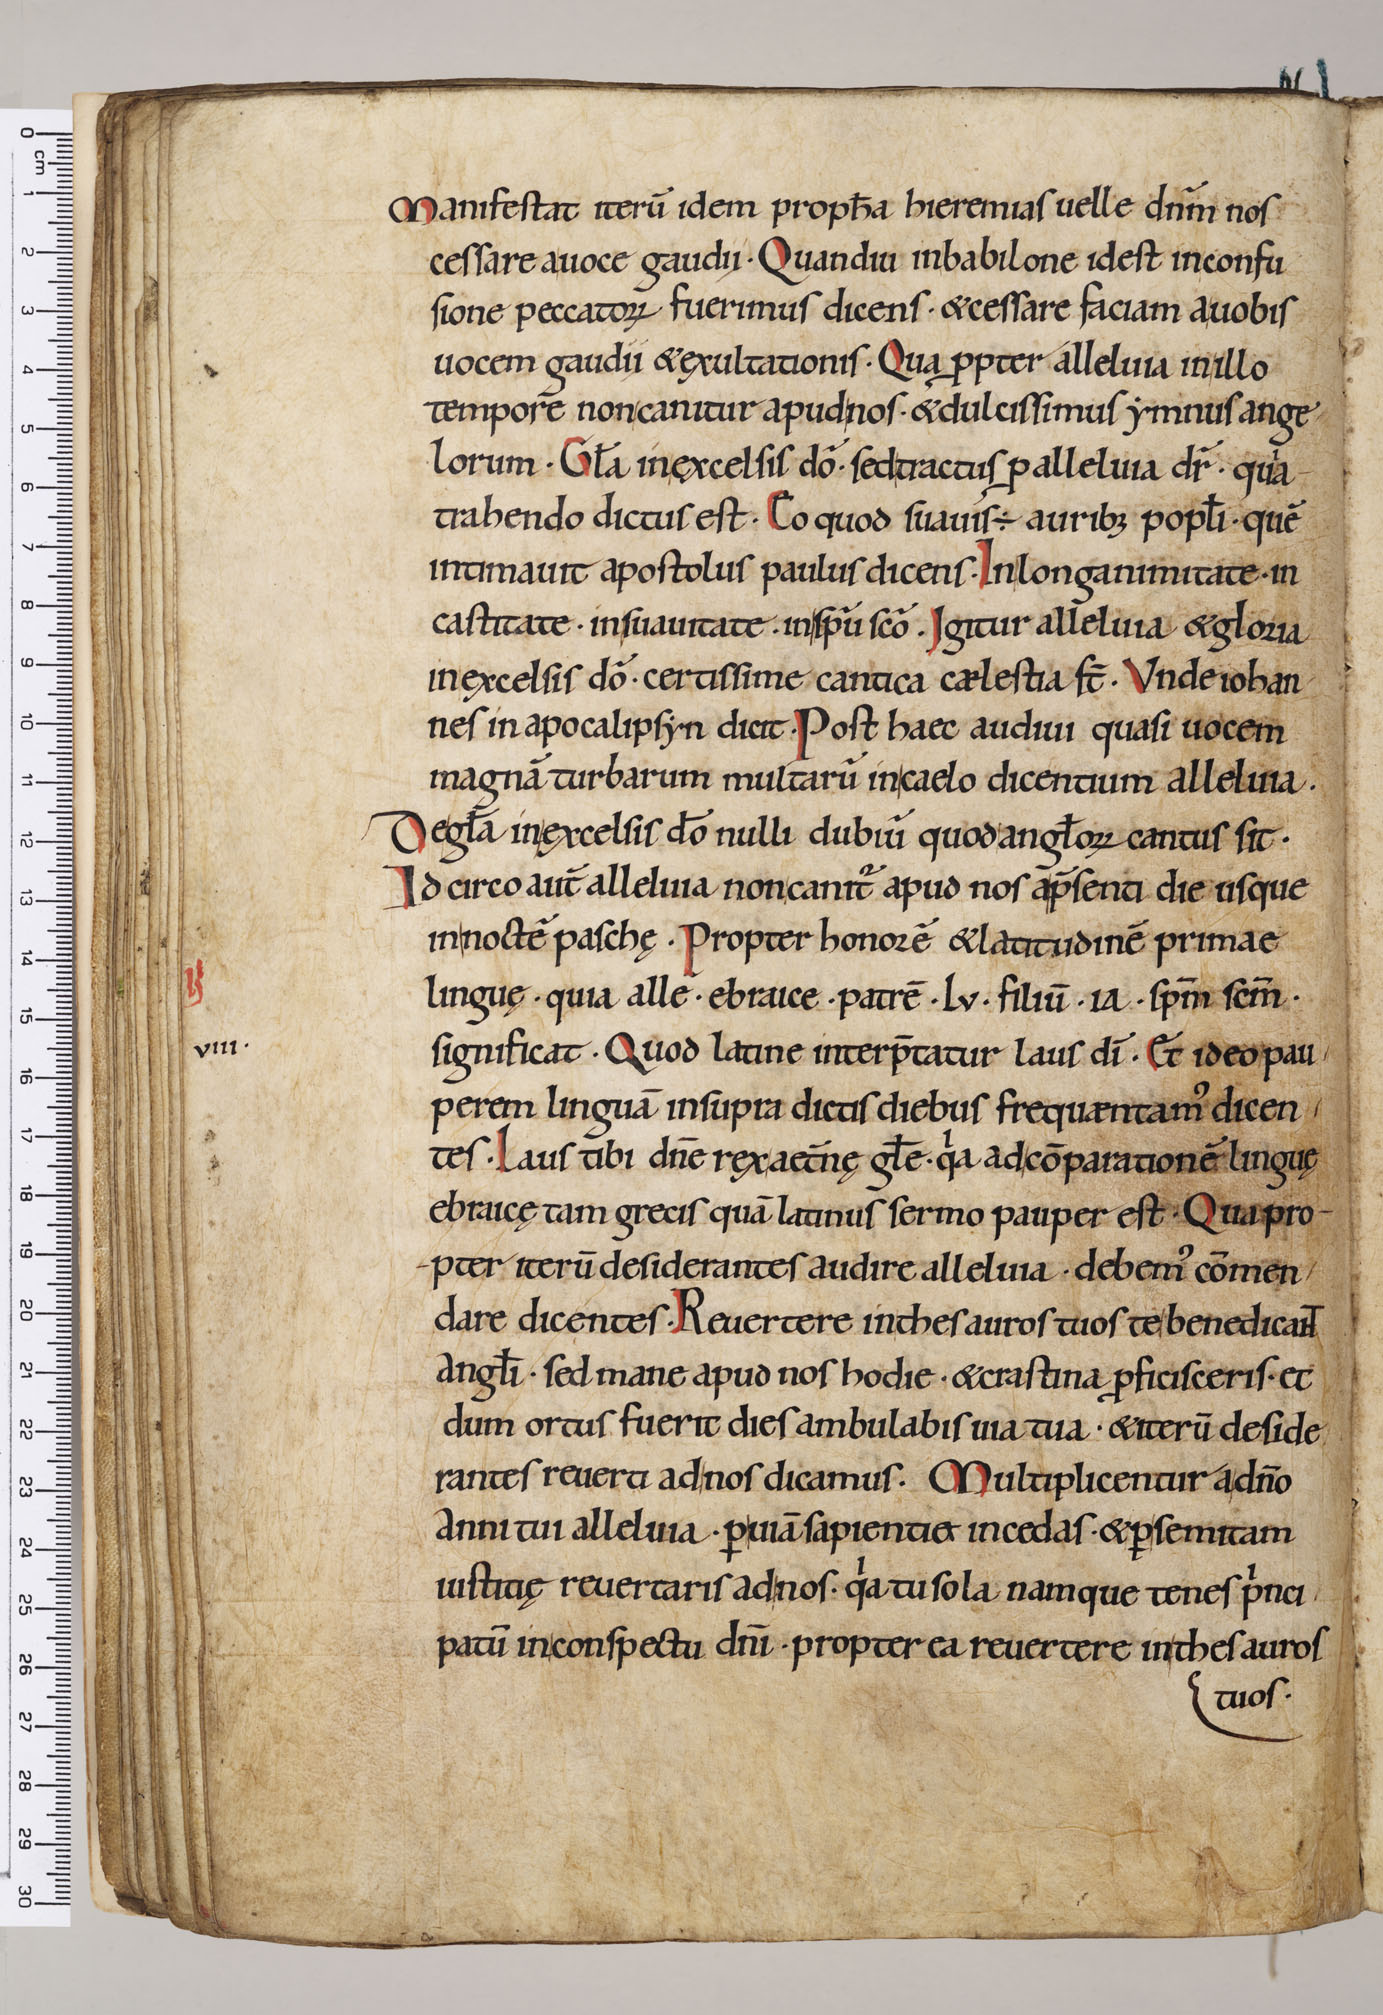 Manifestat iterū idem proph̄a hieremias uelle dn̄m nos
cessare auoce gaudii · Quandiu inbabilone idest inconfu
sione peccatoꝝ fuerimus dicens · &cessare faciam auobis
uocem gaudii &ęxultationis · Qua ꝓpter alleluia inillo
tempore noncanitur apudnos · &dulcissimus ẏmnus ange
lorum · Gła inęxcelsis dō · sedtractus ꝓ alleluia dr̄ · quia
trahendo dictus est · Eo quod suauis ÷ auribꝫ popłi · quē
intimauit apostolus paulus dicens · Inlonganimitate · in
castitate · insuauitate · inspū scō · Igitur alleluia &gloria
inęxcelsis dō · certissime cantica cælestia st̄ · Vnde iohan
nes in apocalipsẏn dicit · Post haec audiui quasi uocem
magnā turbarum multarū incaelo dicentium alleluia ·
Degła inęxcelsis dō nulli dubiū quodangłoꝝ cantus sit ·
Id circo aut̄ alleluia noncanit᷑ apud nos ap̄senti die usque
innoctē paschę · Propter honorē &latitudinē primae
linguę · quia alle · ebraice · patrē · lv · filiū · ia · spm̄ scm̄ ·
viii ·
significat · Quod latine interp̄tatur laus dī · Et ideo pau
perem linguā insupra dictis diebus frequæntamꝰ dicen
tes · Laus tibi dn̄e rex aet̄nę głe · qͥa adcōparationē linguę
ebraicę tam grecis quā latinus sermo pauper est · Qua pro-
-pter iterū desiderantes audire alleluia · debemꝰ cōmen
dare dicentes · Reuertere inthesauros tuos te benedicant
angłi · sed mane apud nos hodie · &crastina ꝓficisceris · et
dum ortus fuerit dies ambulabis uia tua · &iterū deside
rantes reuerti adnos dicamus · Multiplicentur adn̄o
anni tui alleluia · ꝑuiā sapientiæ incedas · &ꝑsemitam
iustitię reuertaris adnos · qͥa tu sola namque tenes pͥnci
patū inconspectu dn̄i · propter ea reuertere inthesauros
tuos ·
0 cm 1 2 3 4 5 6 7 8 9 10 11 12 13 14 15 16 17 18 19 20 21 22 23 24 25 26 27 28 29 30